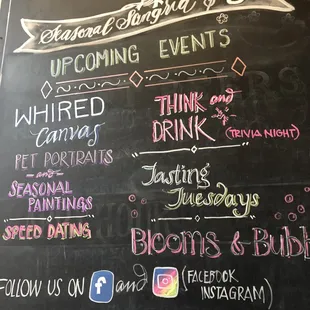 Seasonal Sangria &
UPCOMING EVENTS
WHIRED
Canvas
PET PORTRAITS
and
SEASONAL
PAINTINGS
SPEED DATING
THINK and
DRINK (TRIVIA NIGHT)
Tasting
Tuesdays
Blooms & Bubb
FOLLOW US ON f and (FACEBOOK
INSTAGRAM)